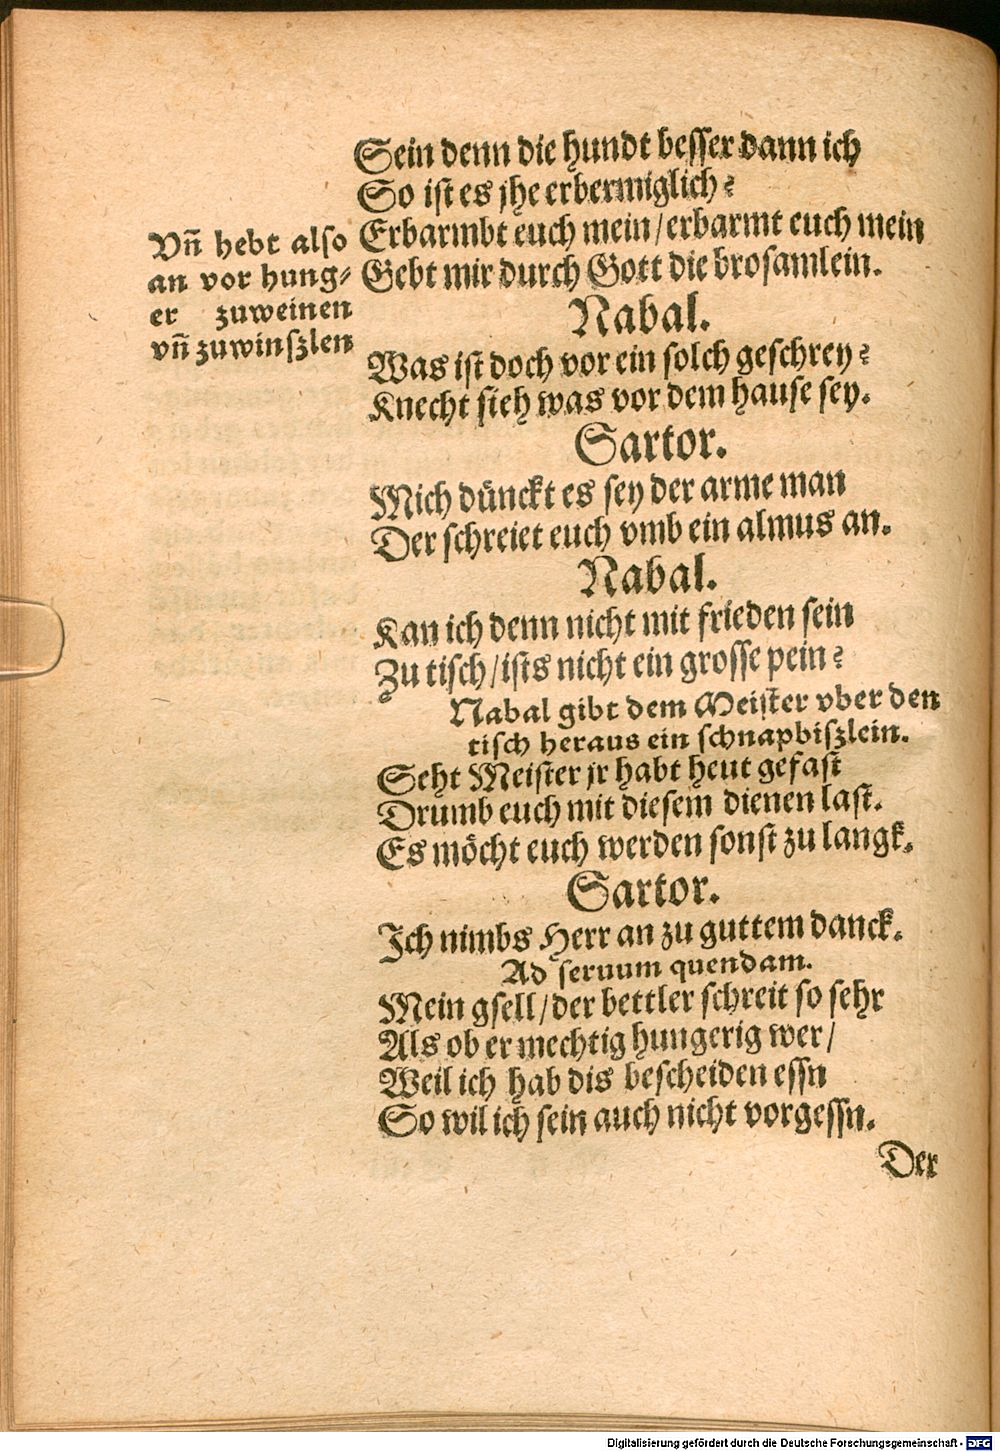 Sein denn die hundt besser dann ich
So ist es jhe erbermiglich?
Erbarmbt euch mein/erbarmt euch mein
Gebt mir durch Gott die brosamlein.
Vñ hebt also
an vor hung-
er zuweinen
vñ zuwinszlen
Nabal.
Was ist doch vor ein solch geschrey?
Knecht sieh was vor dem hause sey.
Sartor.
Mich dünckt es sey der arme man
Der schreiet euch vmb ein almus an.
Nabal.
Kan ich denn nicht mit frieden sein
Zu tisch/ists nicht ein grosse pein?
Nabal gibt dem Meister vber den
tisch heraus ein schnapbiszlein.
Seht Meister jr habt heut gefast
Drumb euch mit diesem dienen last.
Es möcht euch werden sonst zu langk.
Sartor.
Ich nimbs Herr an zu guttem danck.
Ad seruum quendam.
Mein gsell/der bettler schreit so sehr
Als ob er mechtig hungerig wer/
Weil ich hab dis bescheiden essn
So wil ich sein auch nicht vorgessn.
Der
Digitalisierung gefördert durch die Deutsche Forschungsgemeinschaft - DFG